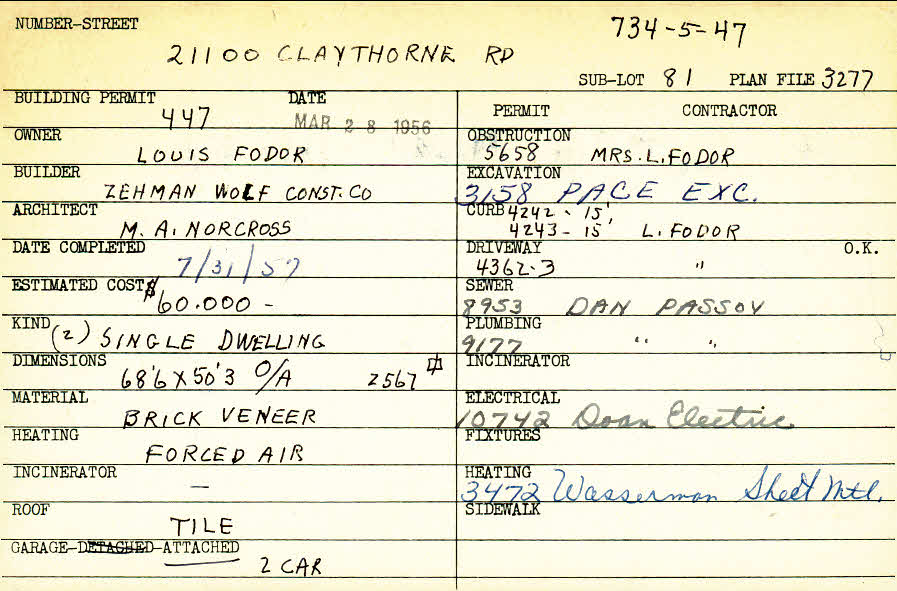 NUMBER-STREET 734-5-47
21100 CLAYTHORNE RD
SUB-LOT 81 PLAN FILE 3277
BUILDING PERMIT 447 DATE MAR 28 1956
OWNER LOUIS FODOR
BUILDER ZEHMAN WOLF CONST. CO
ARCHITECT M. A. NORCROSS
DATE COMPLETED 7/31/57
ESTIMATED COST $60.000 -
KIND (2) SINGLE DWELLING
DIMENSIONS 68'6 X 50'3 O/A 2567
MATERIAL BRICK VENEER
HEATING FORCED AIR
INCINERATOR —
ROOF TILE
GARAGE-DETACHED-ATTACHED
2 CAR
PERMIT CONTRACTOR
OBSTRUCTION
5658 MRS. L. FODOR
EXCAVATION
3158 PACE EXC.
CURB 4242 - 15',
4243 - 15' L. FODOR
DRIVEWAY O.K.
4362-3 "
SEWER
8953 DAN PASSOV
PLUMBING
9177 " "
INCINERATOR
ELECTRICAL
10742 Doan Electric
FIXTURES
HEATING
3472 Wasserman Sheet Mtl.
SIDEWALK